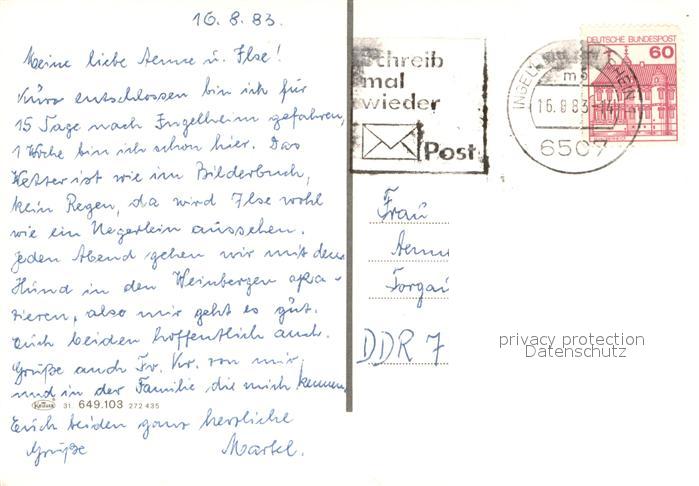 16.8.83.
Meine liebe Aenne u. Ilse!
Kurz entschlossen bin ich für
15 Tage nach Ingelheim gefahren,
1 Woche bin ich schon hier. Das
Wetter ist wie im Bilderbuch,
kein Regen, da wird Ilse wohl
wie ein Negerlein aussehen.
Jeden Abend gehen wir mit dem
Hund in den Weinbergen spa-
zieren, also mir geht es gut.
Euch beiden hoffentlich auch.
Grüße auch Fr. Kr. von mir
und in der Familie die mich kennen.
31 649.103 272 435
Euch beiden ganz herzliche
Grüße Martel.
Schreib
mal
wieder
Post
INGELHEIM RHEIN
mb
16.8.83-14
6507
DEUTSCHE BUNDESPOST
60
Frau
Aenne
Torgau
DDR 7
privacy protection
Datenschutz